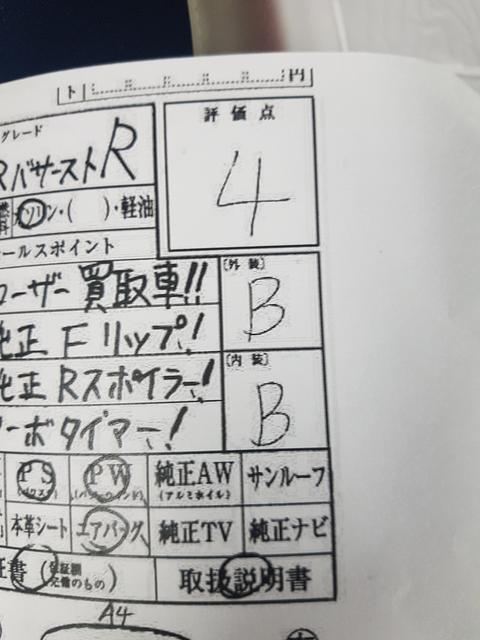 ト 円
グレード
評価点
RバサーストR
4
ガソリン・( )・軽油
ールスポイント
ーザー買取車!!
〔外装〕
B
純正Fリップ!
〔内装〕
純正Rスポイラー!
B
ーボタイマー!
PS PW 純正AW サンルーフ
(パワステ) (パワーウインド) (アルミホイル)
本革シート エアバック 純正TV 純正ナビ
証書 (保証期 完備のもの) 取扱説明書
A4